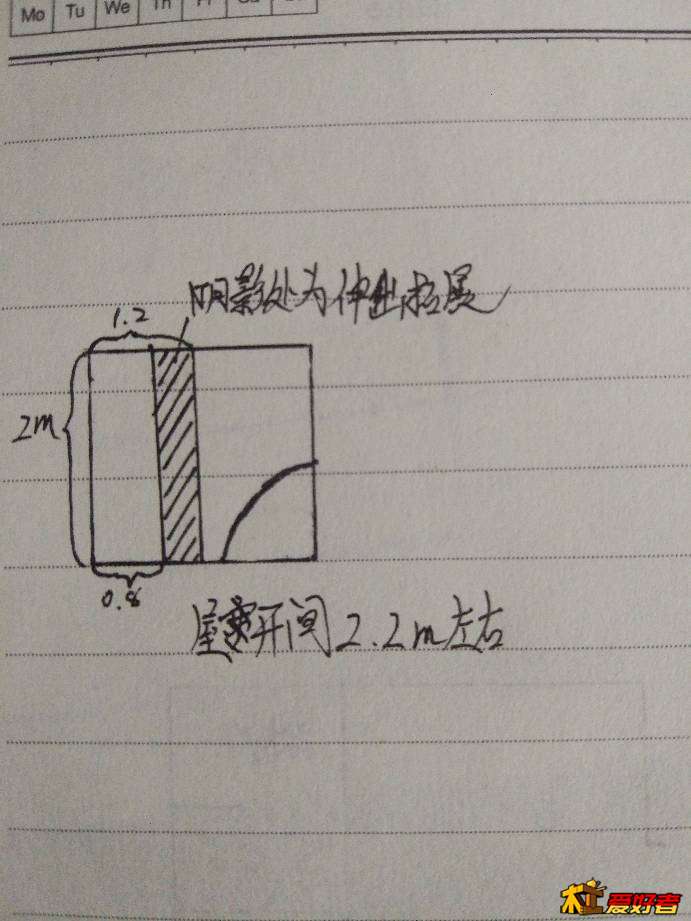 Mo Tu We Th Fr Sa
阴影处为伸出拓展
1.2
2m
0.8
屋宽开间2.2m左右
木工爱好者